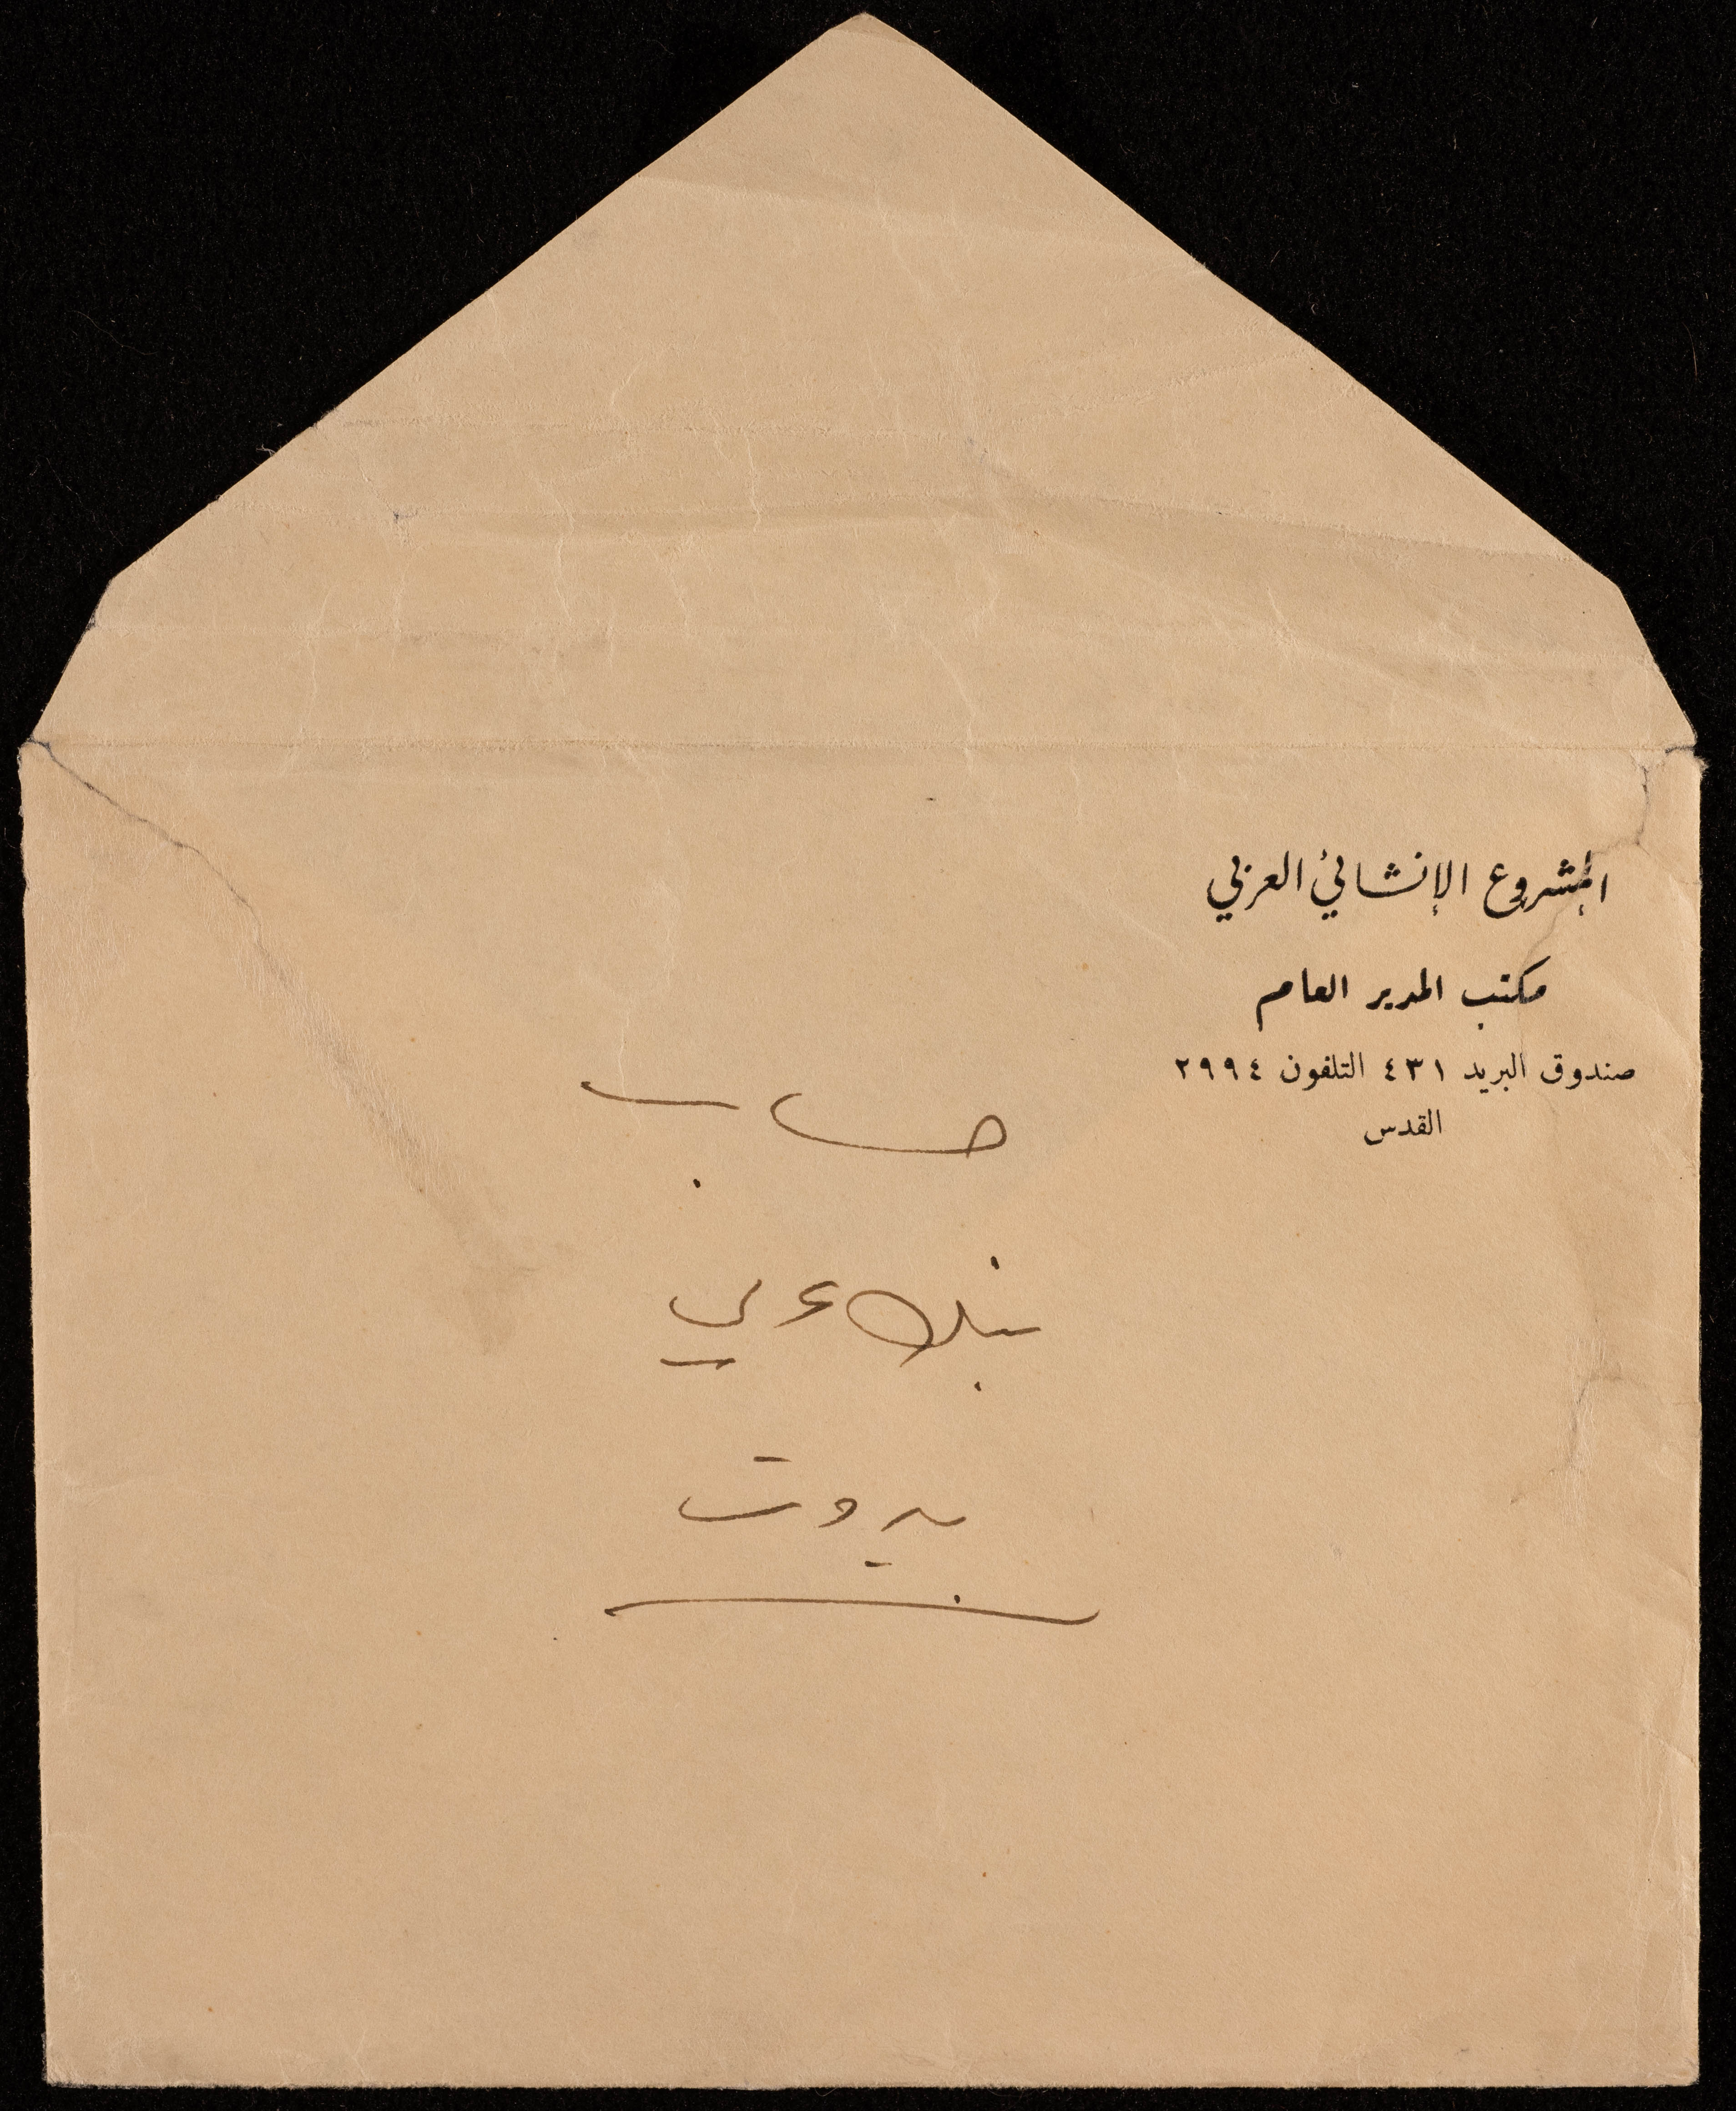 المشروع الإنشائي العربي
مكتب المدير العام
صندوق البريد ٤٣١ التلفون ٢٩٩٤
القدس
حساب
بنك عربي
بيروت